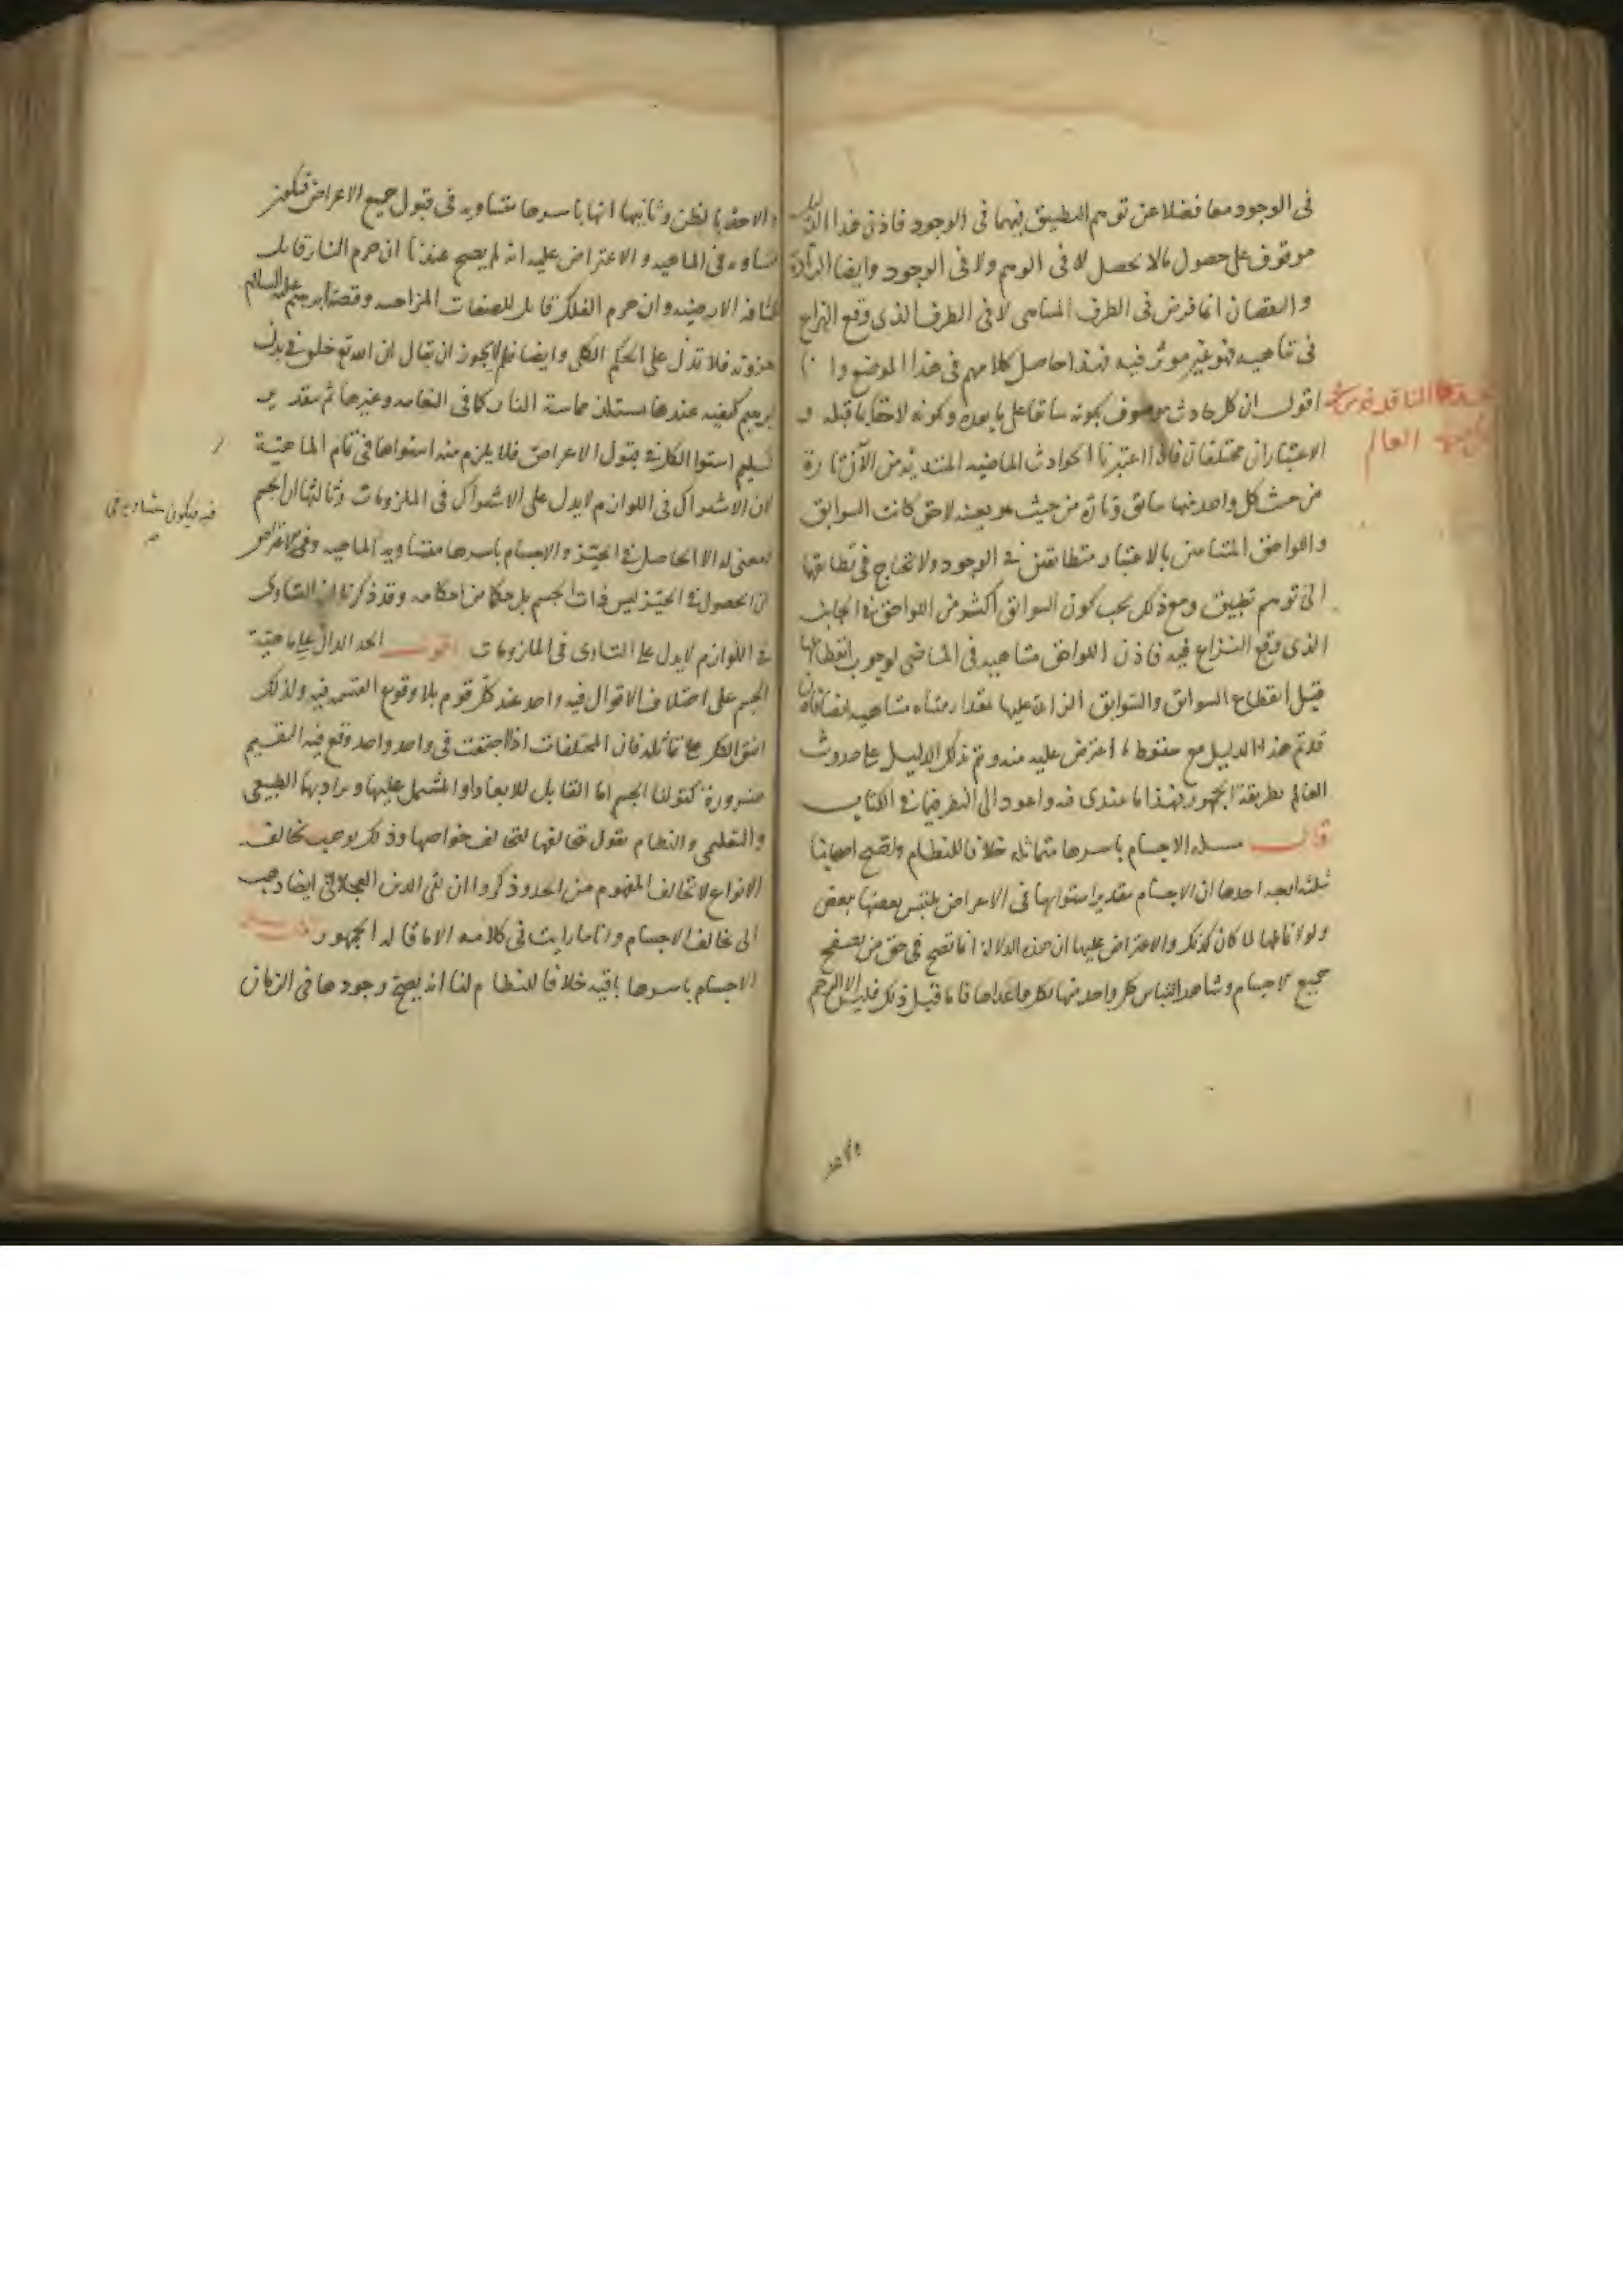 فى الوجود معا فضلا عن توهم التطبيق فيهما فى الوجود فاذن هذا الدليل
موقوف على حصول ما لا يحصل لا فى الوهم ولا فى الوجود وايضا الزيادة
والنقصان انما فرض فى الطرف المتناهى لا فى الطرف الذى وقع النزاع
فى تناهيه فهو غير موثر فيه فهذا حاصل كلامهم فى هذا الموضع وانا
اقول ان كل حادث موصوف بكونه سابقا على ما بعده وكونه لاحقا بما قبله و
الاعتباران مختلفان فاذا اعتبرنا الحوادث الماضيه المبتديه من الآن تارة
من حيث كل واحد منها سابق وتارة من حيث هو بعينه لاحق كانت السوابق
واللواحق المتباينتين بالاعتبار متطابقتين فى الوجود ولا نحتاج فى تطابقهما
الى توهم تطبيق ومع ذلك يجب كون السوابق اكثر من اللواحق فى الجانب
الذى وقع النزاع فيه فاذن اللواحق متناهيه فى الماضى لوجوب انقطاعها
قبل انقطاع السوابق والسوابق الزائدة عليها بمقدار متناه متناهيه ايضا فاذن
قد تم هذا الدليل مع سقوط ما اعترض عليه منه وتم بذلك الدليل على حدوث
العالم بطريقة الجمهور فهذا ما عندى فيه واعود الى النظر فيما فى الكتاب
قال مسـله الاجسام باسرها متماثله خلافا للنظام واحتج اصحابنا
بثلثه اوجه احدها ان الاجسام بتقدير استوايها فى الاعراض يلتبس بعضها ببعض
ولولا تماثلها لما كان كذلك والاعتراض عليها ان هذه الدلالة انما تصح فى حق من تصفح
جميع الاجسام وشاهد التباس كل واحد منها بكل ما عداها فاما قبل ذلك فليس الا الرجم
الناقد
العالم
والاخذ بالظن وثانيها انها باسرها متساويه فى قبول جميع الاعراض فيكون
متساويه فى الماهيه والاعتراض عليه انه لم يصح عندنا ان جرم النار قابل
للكثافة الارضيه وان جرم الفلك قابل للصفات المزاجيه وقصة ابرهيم عليه السلام
جزويه فلا تدل على الحكم الكلى وايضا فلم لا يجوز ان يقال ان الله تع خلق فى بدن
ابرهيم كيفيه عندها يستلذ مماسة النار كما فى النعامه وغيرها ثم بتقدير
تسليم استوا الكل فى قبول الاعراض فلا يلزم منه استواها فى تمام الماهية
لان الاشتراك فى اللوازم لا يدل على الاشتراك فى الملزومات وثالثها ان الجسم
لا معنى له الا الحاصل فى الحيز والاجسام باسرها متساويه فيه
ان الحصول فى الحيز ليس ذات الجسم بل حكما من احكامه وقد ذكرنا ان التساوى
فى اللوازم لا يدل على التساوى فى الملزومات اقول الحد الدال على ماهية
الجسم على اختلاف الاقوال فيه واحد عند كل قوم بلا وقوع القسمه فيه ولذلك
اتفق الكل على تماثله فان المختلفات اذا اجتمعت فى واحد واحد وقع فيه التقسيم
ضرورة كقولنا الجسم اما القابل للابعاد او المشتمل عليها ويراد بهما الطبيعى
والتعليمى والنظام يقول بتخالفها لتخالف خواصها وذلك يوجب تخالف
الانواع لا تخالف المفهوم من الحد وذكروا ان تقى الدين العجالى ايضا ذهب
الى تخالف الاجسام وانا ما رايت فى كلامه الا ما قاله الجمهور
الاجسام باسرها باقيه خلافا للنظام لنا انه يصح وجودها فى الزمان
فيه فيكون متساويه فى